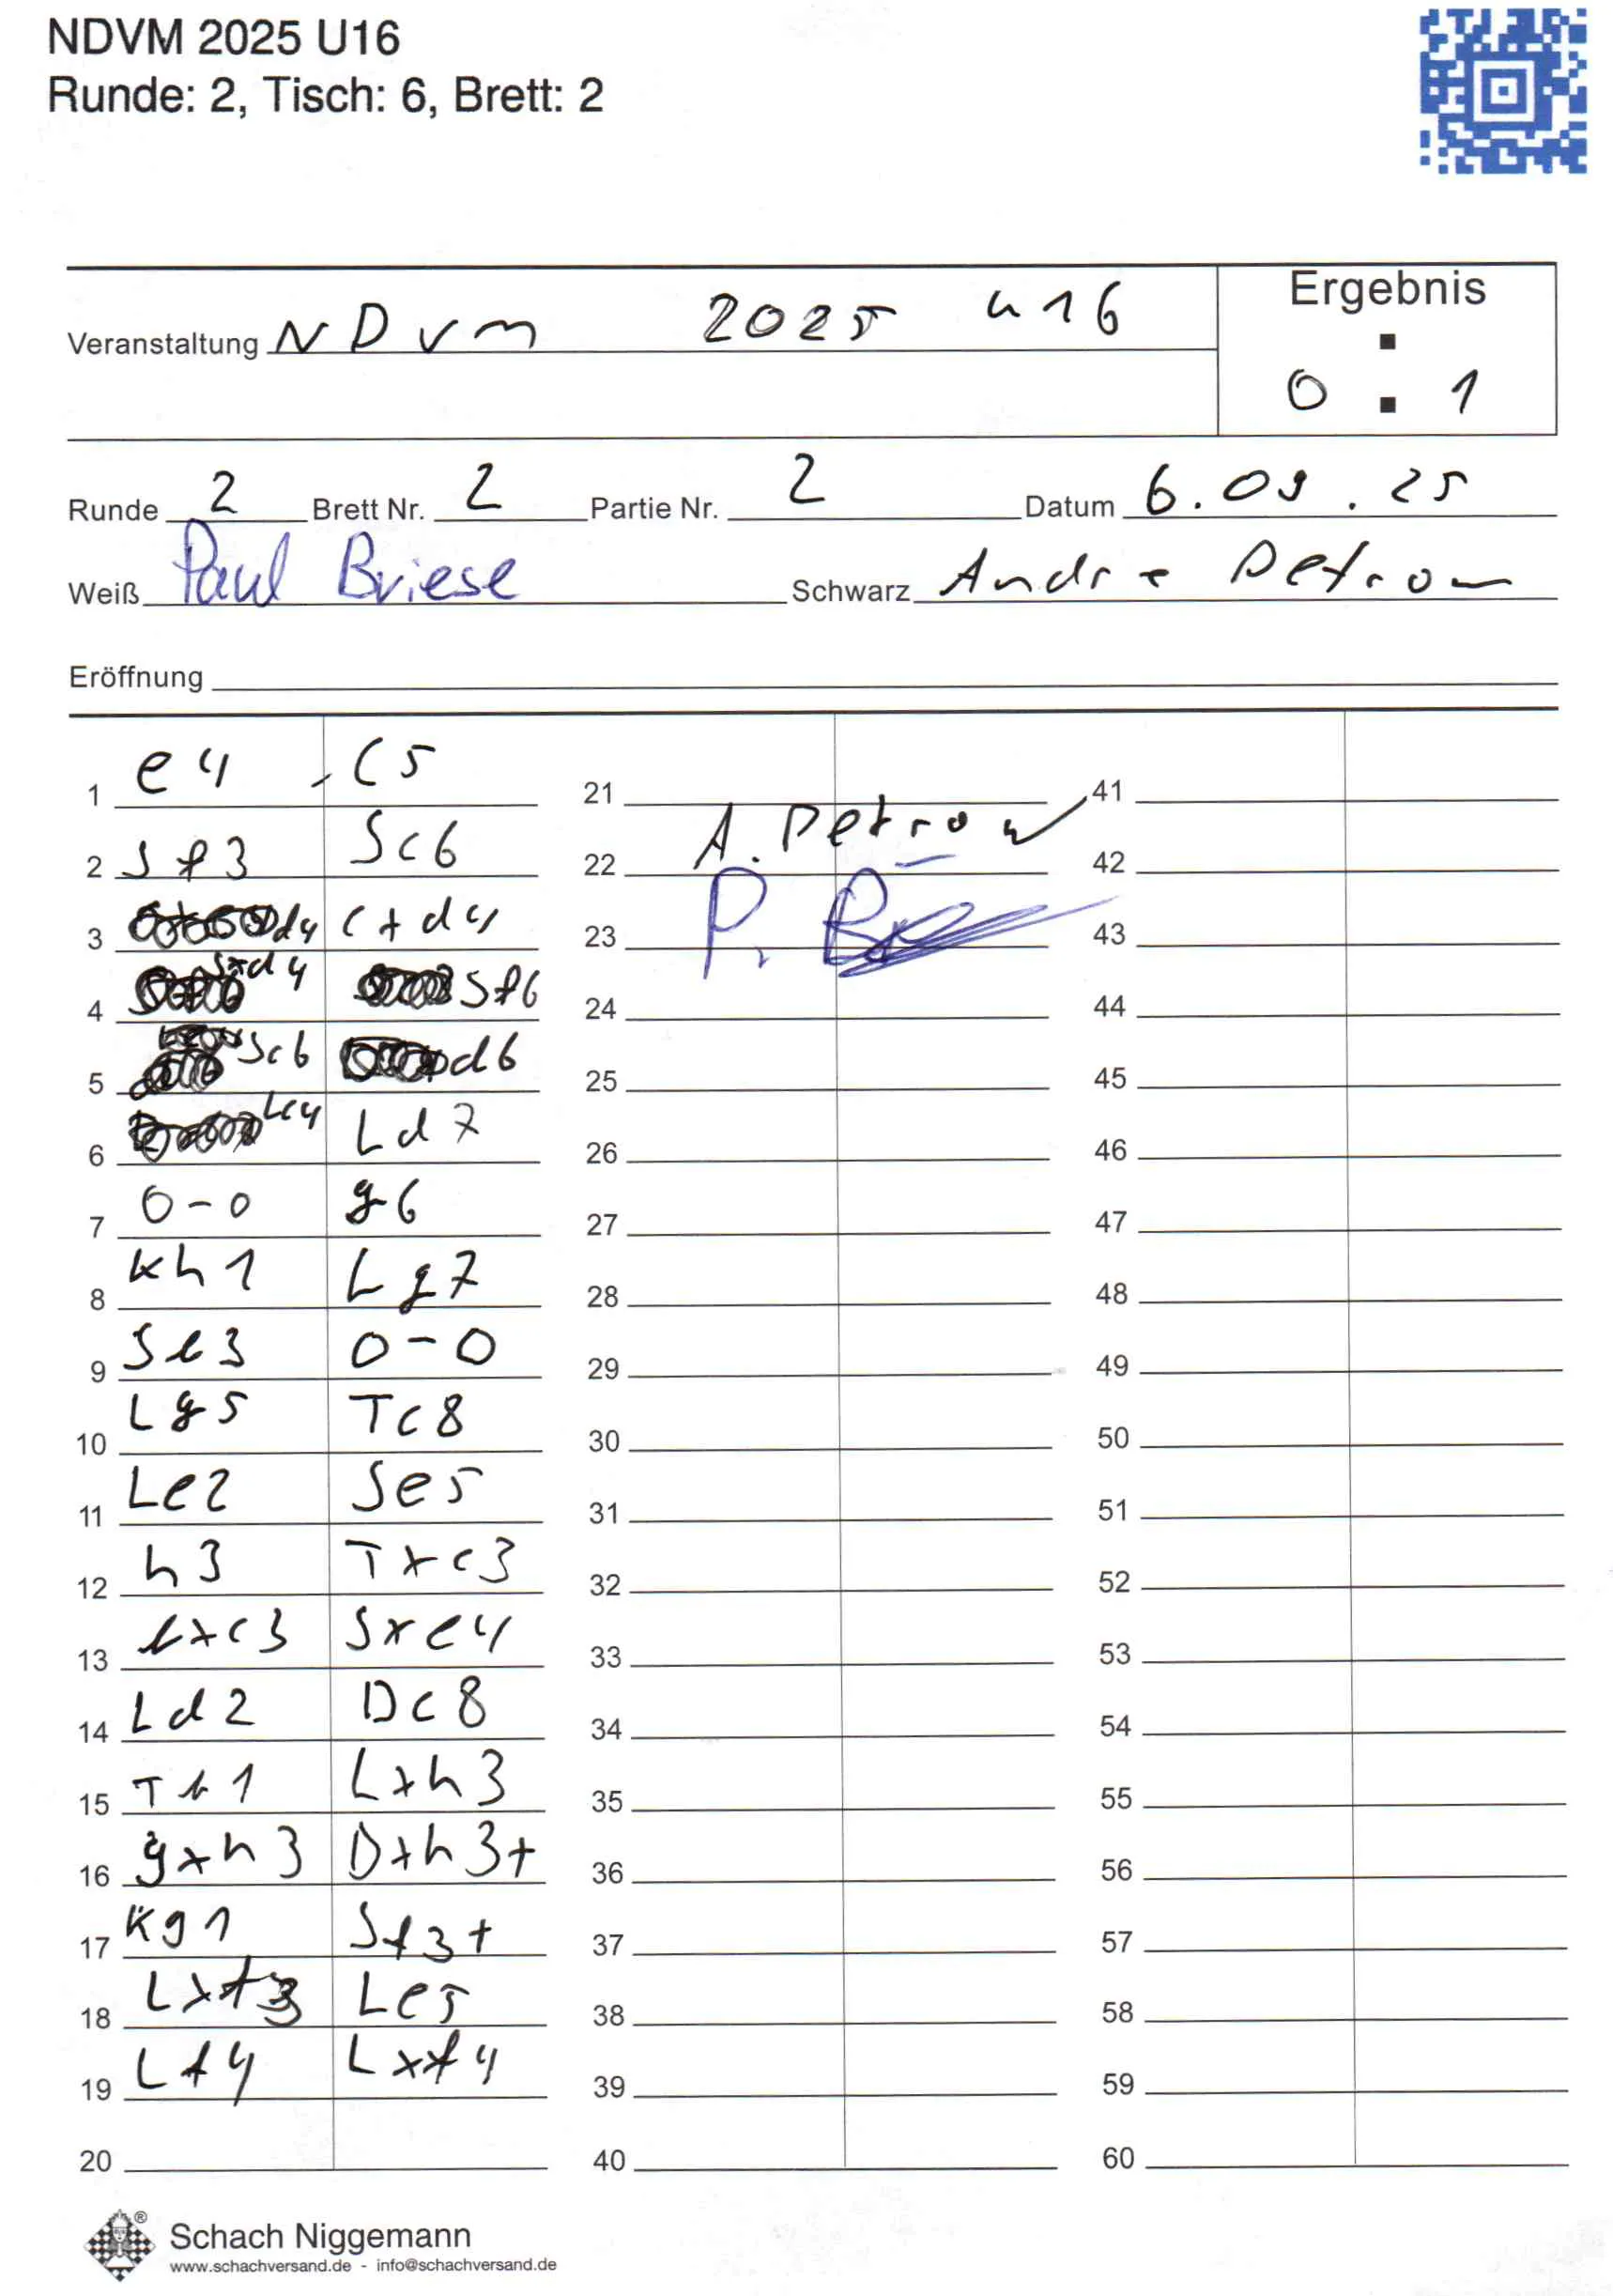 NDVM 2025 U16
Runde: 2, Tisch: 6, Brett: 2
Veranstaltung NDVM 2025 U16
Ergebnis
0 : 1
Runde 2 Brett Nr. 2 Partie Nr. 2 Datum 6.09.25
Weiß Paul Briese Schwarz Andre Petrow
Eröffnung
1 e4 c5
2 Sf3 Sc6
3 d4 c+d4
4 Sxd4 Sf6
5 Sc6 d6
6 Lc4 Ld7
7 0-0 g6
8 Kh1 Lg7
9 Se3 0-0
10 Lg5 Tc8
11 Le2 Se5
12 h3 Txc3
13 bxc3 Sxe4
14 Ld2 Dc8
15 Tb1 Lxh3
16 gxh3 Dxh3+
17 Kg1 Sf3+
18 Lxf3 Le5
19 Lf4 Lxf4
20
21
22 A. Petrow
23 P.
24
25
26
27
28
29
30
31
32
33
34
35
36
37
38
39
40
41
42
43
44
45
46
47
48
49
50
51
52
53
54
55
56
57
58
59
60
Schach Niggemann
www.schachversand.de - info@schachversand.de